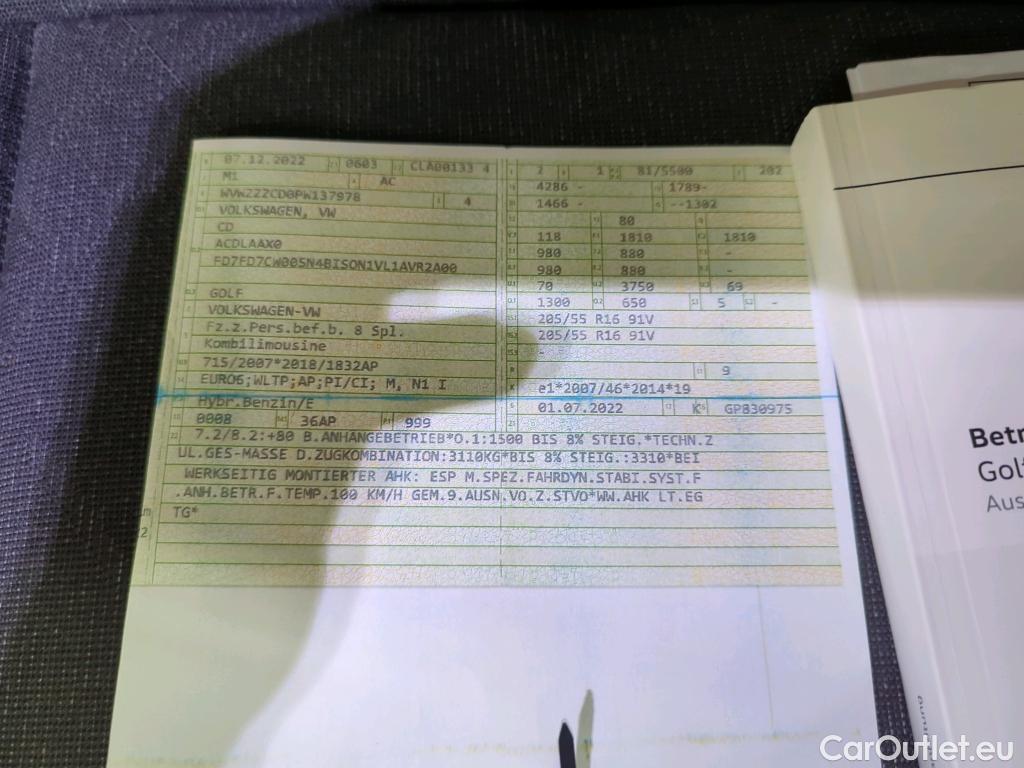 07.12.2022 0603 CLA00133 4
M1 AC
WVWZZZCD0PW137978 4
VOLKSWAGEN, VW
CD
ACDLAAX0
FD7FD7CW005N4BISON1VL1AVR2A00
GOLF
VOLKSWAGEN-VW
Fz.z.Pers.bef.b. 8 Spl.
Kombilimousine
715/2007*2018/1832AP
EURO6;WLTP;AP;PI/CI; M, N1 I
Hybr.Benzin/E
0008 36AP 999
2 1 81/5500 202
4286 - 1789-
1466 - --1302
80
118 1810 1810
980 880 -
980 880 -
70 3750 69
1300 650 5 -
205/55 R16 91V
205/55 R16 91V
-
9
e1*2007/46*2014*19
01.07.2022 K GP830975
7.2/8.2:+80 B.ANHÄNGEBETRIEB*O.1:1500 BIS 8% STEIG.*TECHN.Z
UL.GES-MASSE D.ZUGKOMBINATION:3110KG*BIS 8% STEIG.:3310*BEI
WERKSEITIG MONTIERTER AHK: ESP M.SPEZ.FAHRDYN.STABI.SYST.F
.ANH.BETR.F.TEMP.100 KM/H GEM.9.AUSN.VO.Z.STVO*WW.AHK LT.EG
TG*
Betr
Golf
Aus
CarOutlet.eu